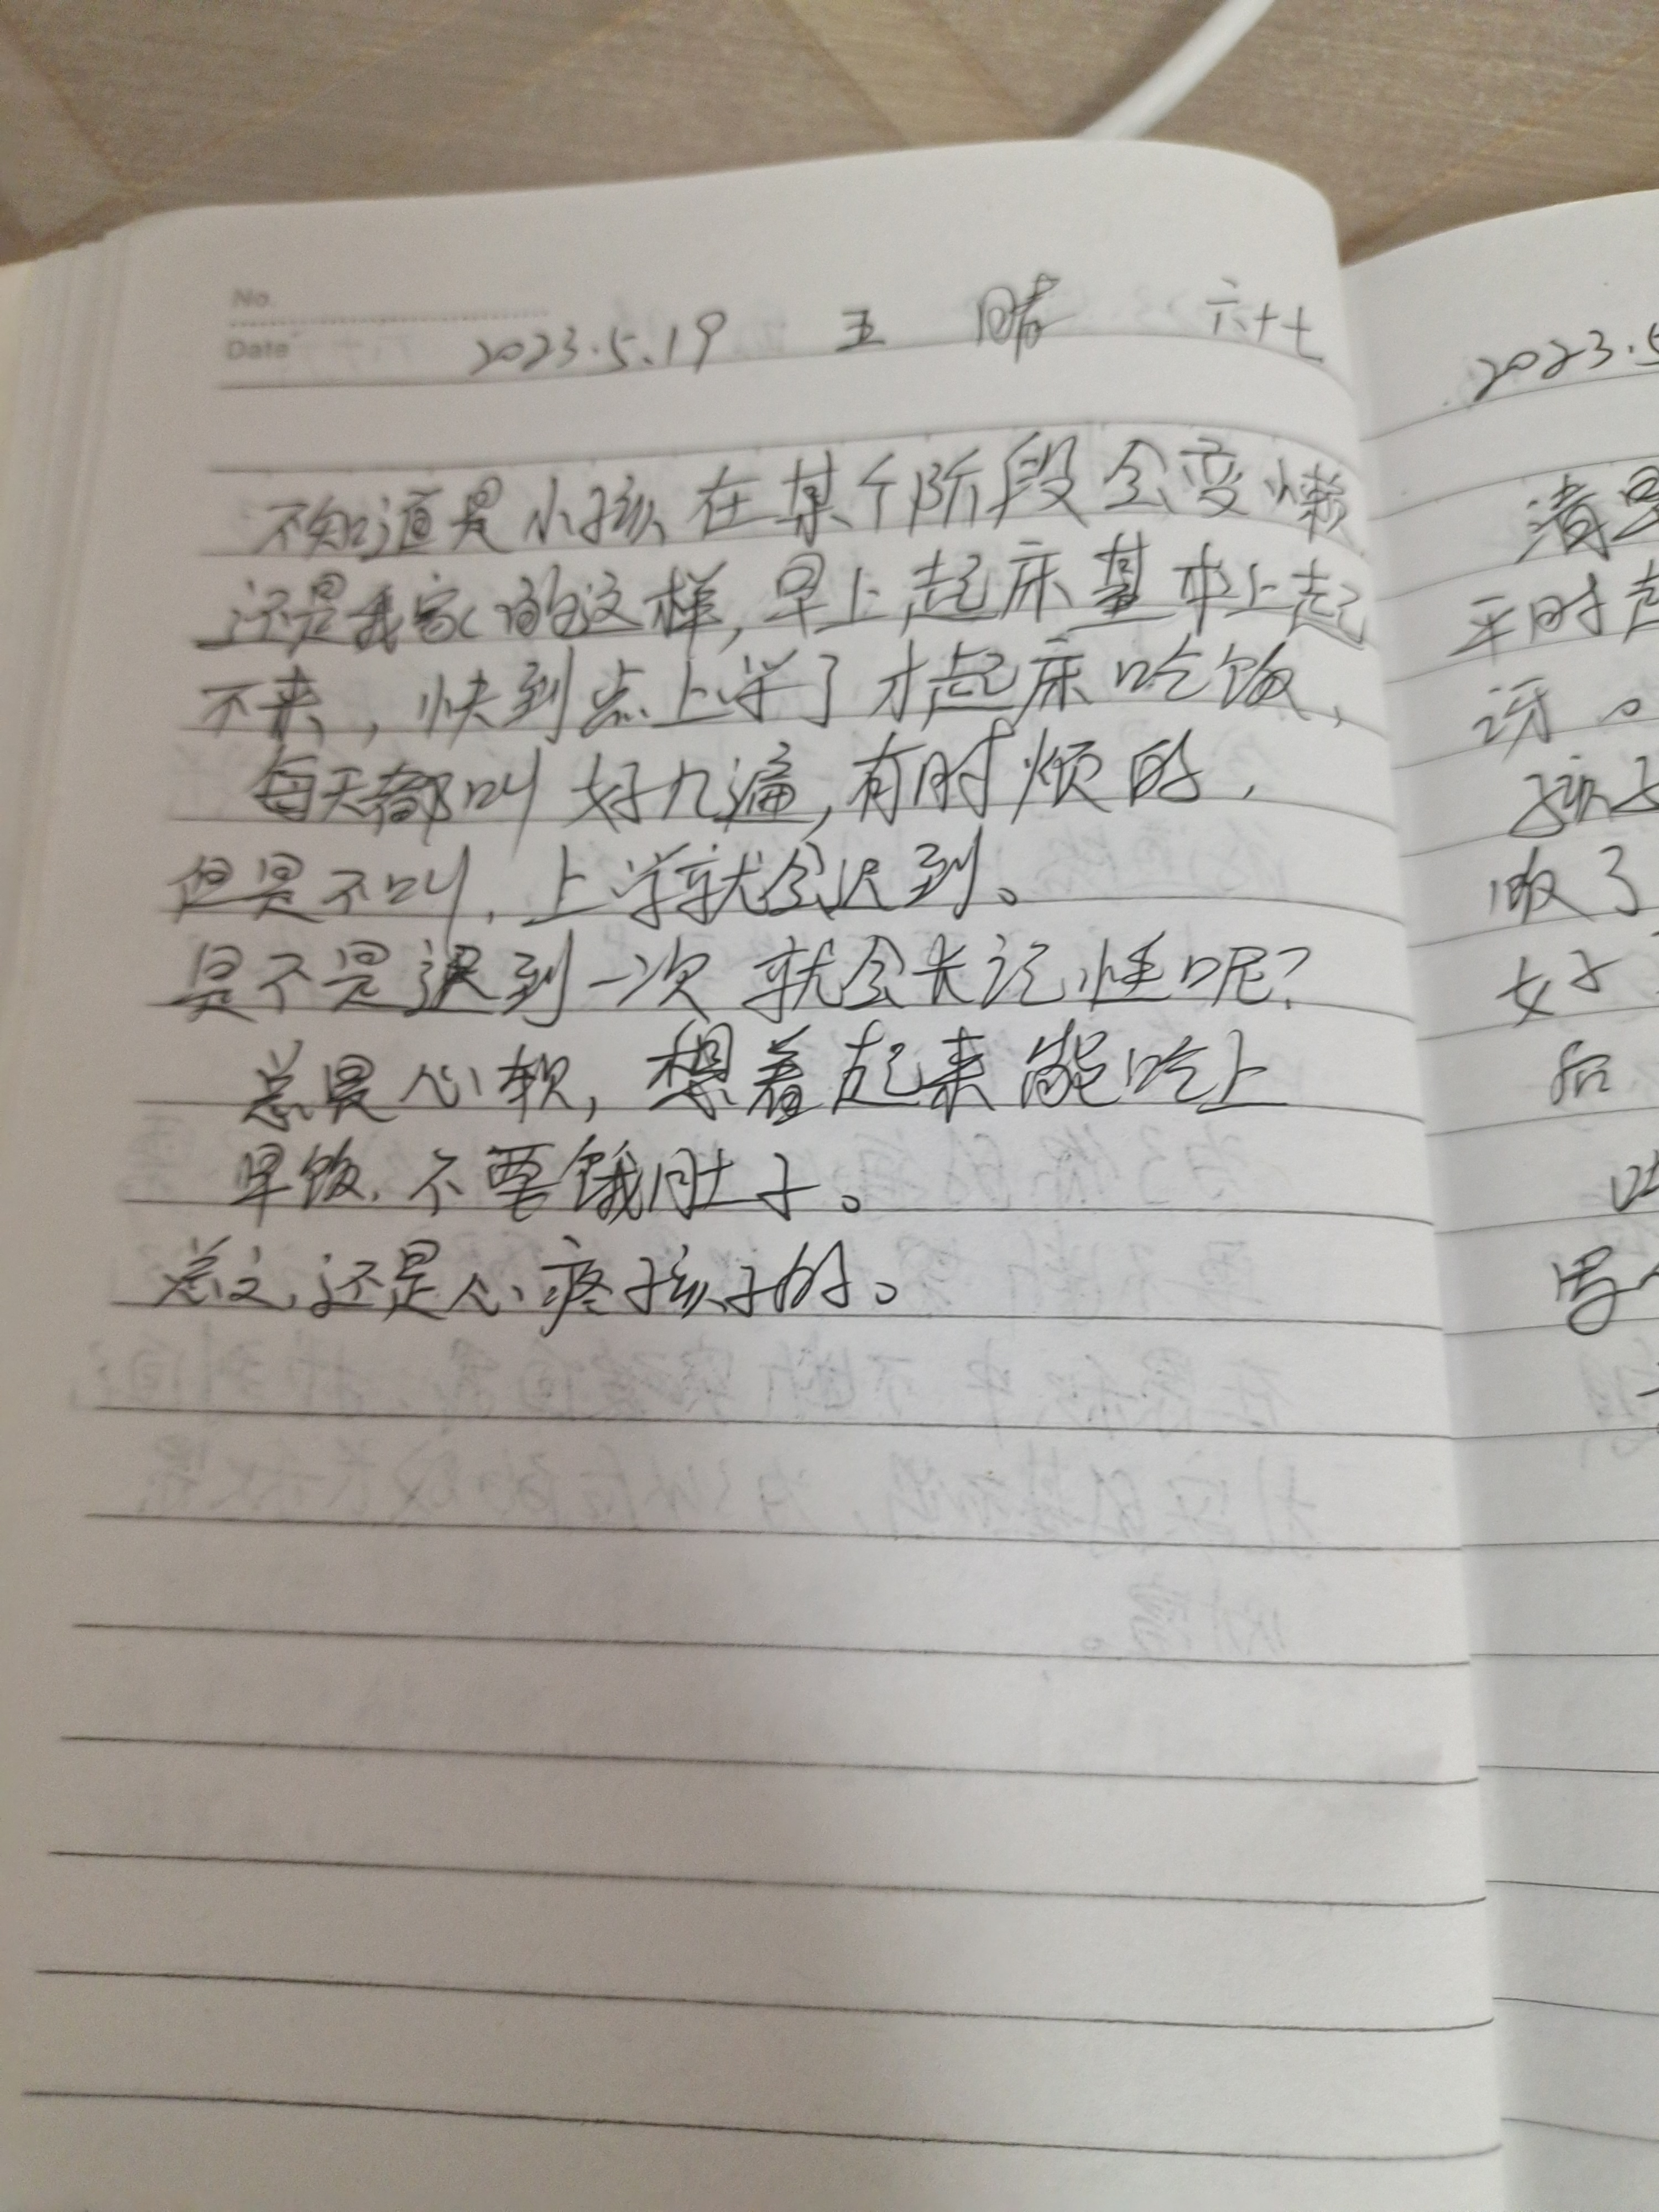 No.
Date
2023.5.19 五 晴 六十七
不知道是小孩在某个阶段会变懒
还是我家的这样,早上起床基本上起
不来,快到点上学了才起床吃饭,
每天都叫好几遍,有时烦的,
但是不叫,上学就会迟到。
是不是迟到一次就会长记性呢?
总是心软,想着起来能吃上
早饭,不要饿肚子。
总之,还是心疼孩子的。
2023.5
清早
平时起
讶。
孩子
做了
好
后
吃